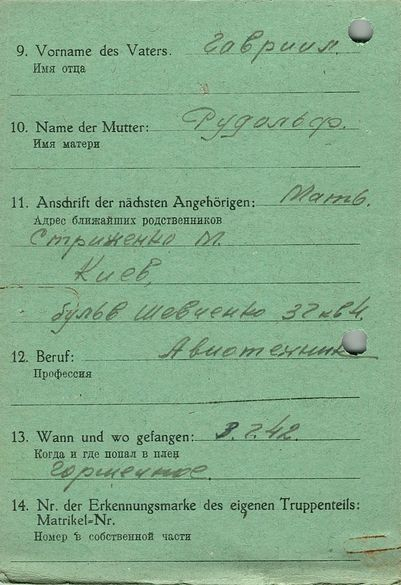 9. Vorname des Vaters. Гавриил.
Имя отца
10. Name der Mutter: Рудольф.
Имя матери
11. Anschrift der nächsten Angehörigen: Мать.
Адрес ближайших родственников
Стриженко М.
Киев,
бульв Шевченко 37 кв 4.
12. Beruf: Авиотехник
Профессия
13. Wann und wo gefangen: 3.7.42.
Когда и где попал в плен
Горшечное.
14. Nr. der Erkennungsmarke des eigenen Truppenteils:
Matrikel-Nr.
Номер в собственной части